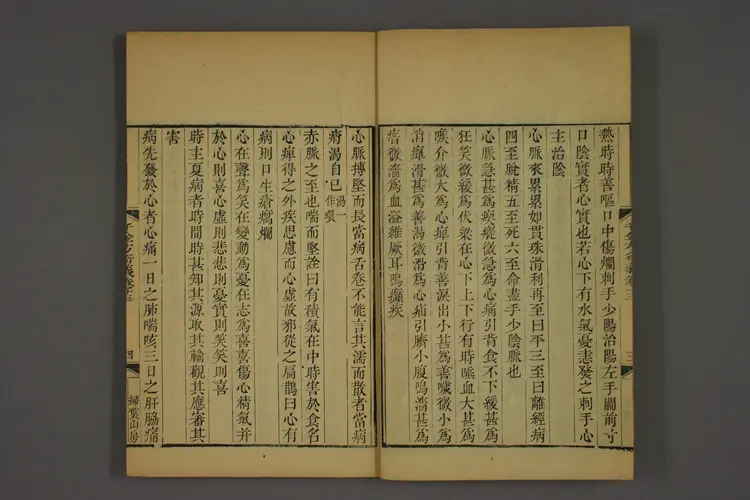 熱時時善嘔口中傷爛刺手少陽治陽左手關前寸
口陰實者心實也若心下有水氣憂恚發之刺手心
主治陰
心脈來累累如貫珠滑利再至曰平三至曰離經病
四至脫精五至死六至命盡手少陰脈也
心脈急甚為瘈瘲微急為心痛引背食不下緩甚為
狂笑微緩為伏梁在心下上下行有時唾血大甚為
喉介微大為心痺引背善淚出小甚為善噦微小為
消癉滑甚為善渴微滑為心疝引臍小腹鳴濇甚為
瘖微濇為血溢維厥耳鳴癲疾
千金方衍義卷十三
三
心脈搏堅而長當病舌卷不能言其濡而散者當病
痟渴自已渴一作環
赤脈之至也喘而堅診曰有積氣在中時害於食名
心痺得之外疾思慮而心虛故邪從之扁鵲曰心有
病則口生瘡腐爛
心在聲為笑在變動為憂在志為喜喜傷心精氣并
於心則喜心虛則悲悲則憂實則笑笑則喜
時主夏病者時間時甚知其源取其輸觀其應審其
害
病先發於心者心痛一日之肺喘咳三日之肝脇痛
千金方衍義卷十三
四
掃葉山房